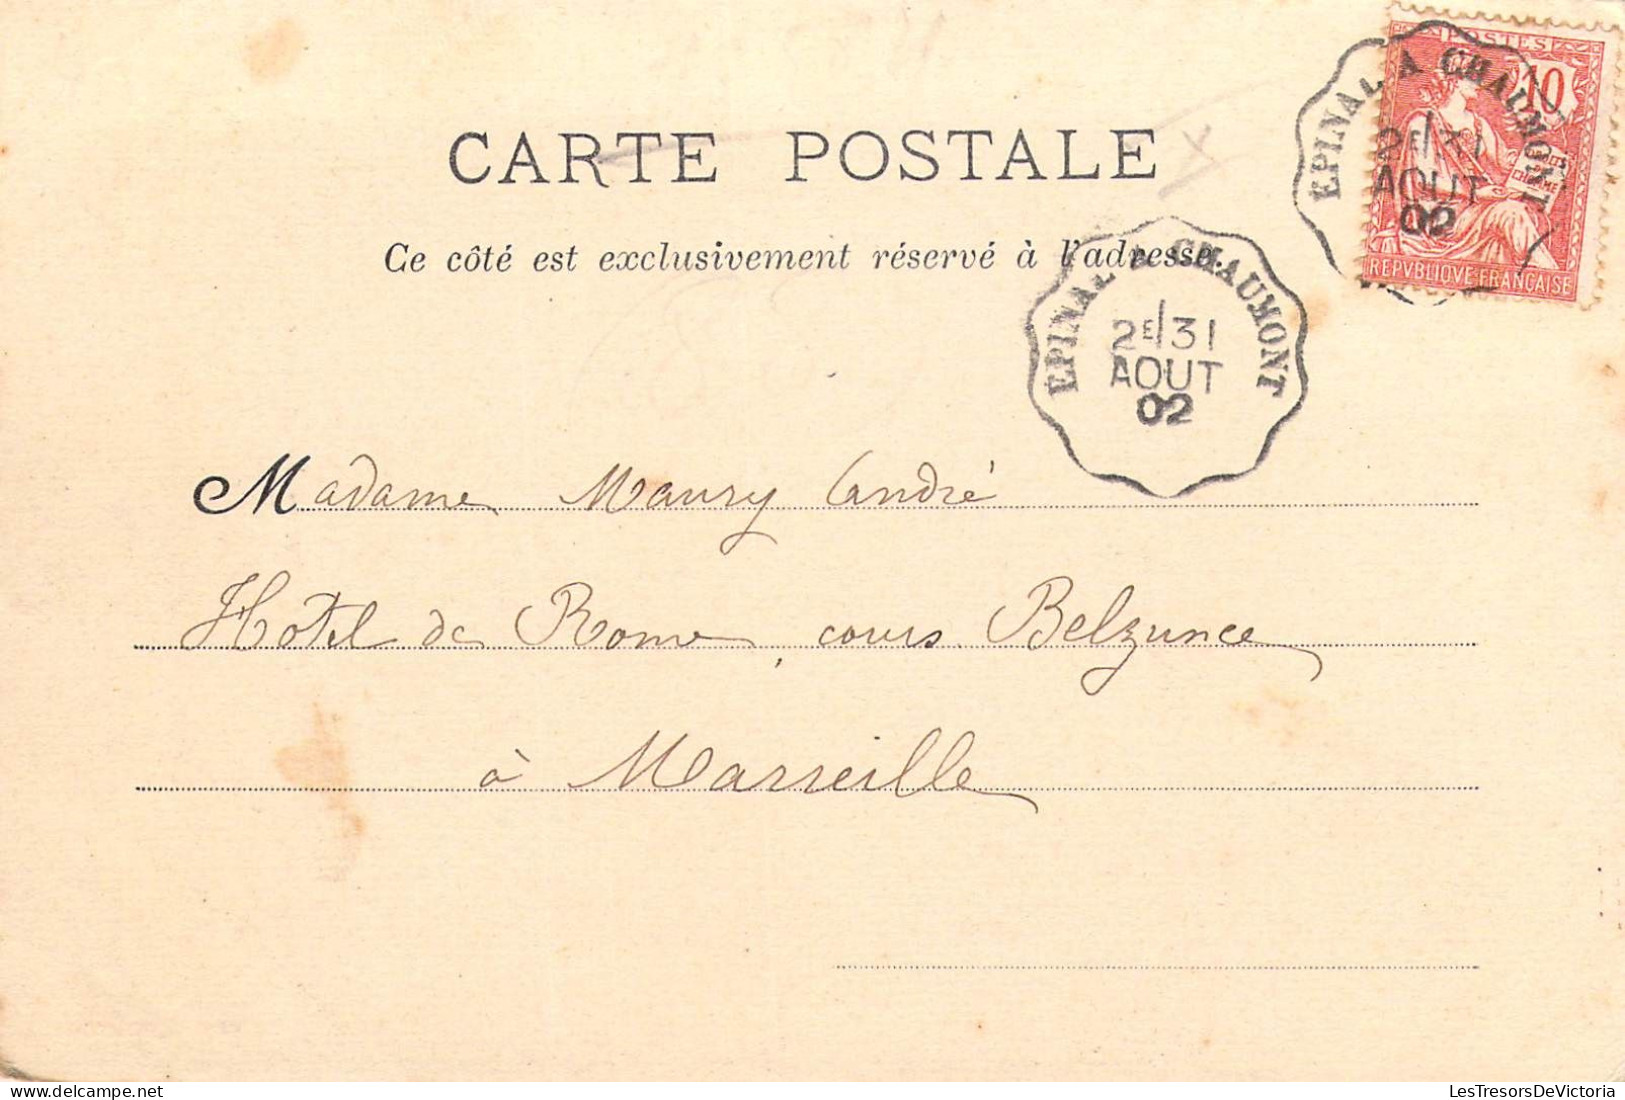 POSTES
10
DROITS DE L'HOMME
REPVBLIQVE FRANÇAISE
EPINAL A CHAUMONT
2E/31
AOUT
02
CARTE POSTALE
Ce côté est exclusivement réservé à l'adresse.
EPINAL A CHAUMONT
2E/31
AOUT
02
Madame Maury André
Hôtel de Rome, cours Belzunce
à Marseille
LesTresorsDeVictoria